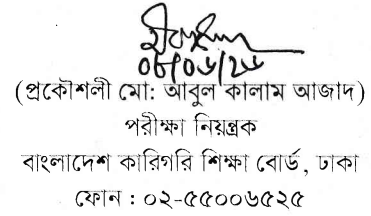 ০৮/০৬/২৬
(প্রকৌশলী মো: আবুল কালাম আজাদ)
পরীক্ষা নিয়ন্ত্রক
বাংলাদেশ কারিগরি শিক্ষা বোর্ড, ঢাকা
ফোন : ০২-৫৫০০৬৫২৫